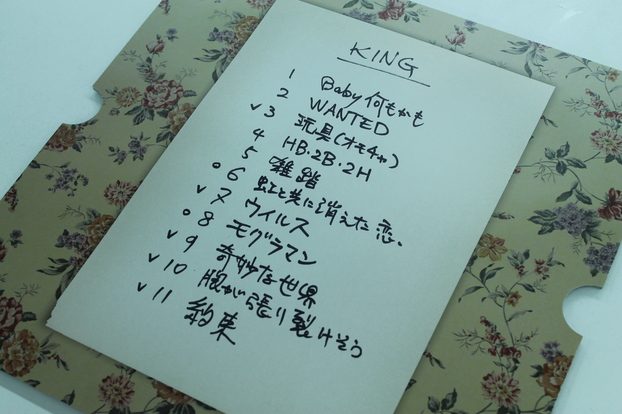 KING
1 Baby何もかも
2 WANTED
v 3 玩具(オモチャ)
4 HB・2B・2H
5 雑踏
o 6 虹と共に消えた恋、
v 7 ウイルス
o 8 モグラマン
v 9 奇妙な世界
v 10 腹が張り裂けそう
v 11 約束